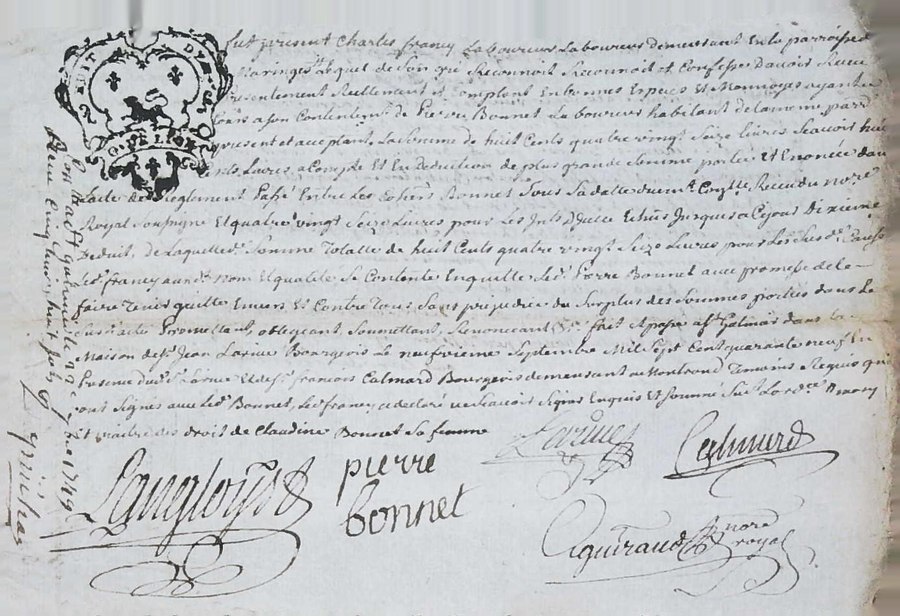 HUIT D
G. DE LION
fut present Charles francy Laboureur Laboureur demeurant En la parroisse de
Maringes Lequel de Son gré Reconnoit et Confesse Davoir Receu
presentement Reellement et Comptent En bonnes Especes et Monnoyes ayant
Cours a son Contentemt. de Pierre Bonnet Laboureur habitant de la meme parr
present et acceptant La Somme de huit Cents quatre vingt Seize Livres Scavoir huit
Cents Livres a Compte Et En deduction de plus grande Somme portée Et Enoncée dans
Lacte de Reglement Passé Entre Les Bonnet Sous Sa datte Receu du nore.
Royal Soussigne Et quatre vingt Seize Livres pour Les Echus Jusques a Ce jour
deduit, De Laquelle de. Somme Totalle de huit Cents quatre vingt Seize Livres pour Les Causes
Led. francy aud. Nom Et qualité Se Contente En quitte Led. Pierre Bonnet avec promesse de le
faire Tenir quitte Envers Et Contre Tous, Sans prejudice du Surplus des Sommes portées dans Le
Susd. acte Promettant, obligeant Soumettant, Renonceant &c. fait Et passé a St. Galmier dans La
Maison de Sr. Jean Larive Bourgeois Le neufvieme Septembre Mil Sept Cent quarante neuf En
presence dud. Sr. Larive Et de Sr. francois Calmard Bourgeois demeurant au Montrond Temoins Requis qui
ont Signés avec Led. Bonnet, Led. francy a declaré ne Scavoir Signer Enquis Et Sommé
Et maitre des droit de Claudine Bonnet Sa femme
Larive
Calmard
Langloys
pierre
bonnet
Aguiraud nore
royal
7bre 1749
Receu Cinq Livres huit Sols